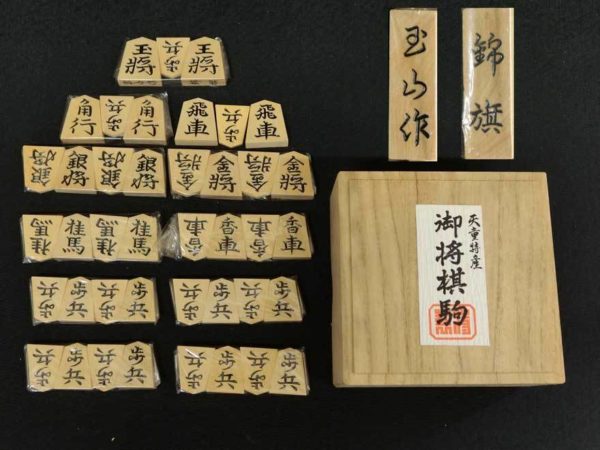 玉将 歩兵 王将
角行 歩兵 角行
飛車 歩兵 飛車
銀将 銀将 銀将 銀将
金将 金将 金将 金将
桂馬 桂馬 桂馬 桂馬
香車 香車 香車 香車
歩兵 歩兵 歩兵 歩兵
歩兵 歩兵 歩兵 歩兵
歩兵 歩兵 歩兵 歩兵
歩兵 歩兵 歩兵 歩兵
玉山作
錦旗
天童特産
御将棋駒